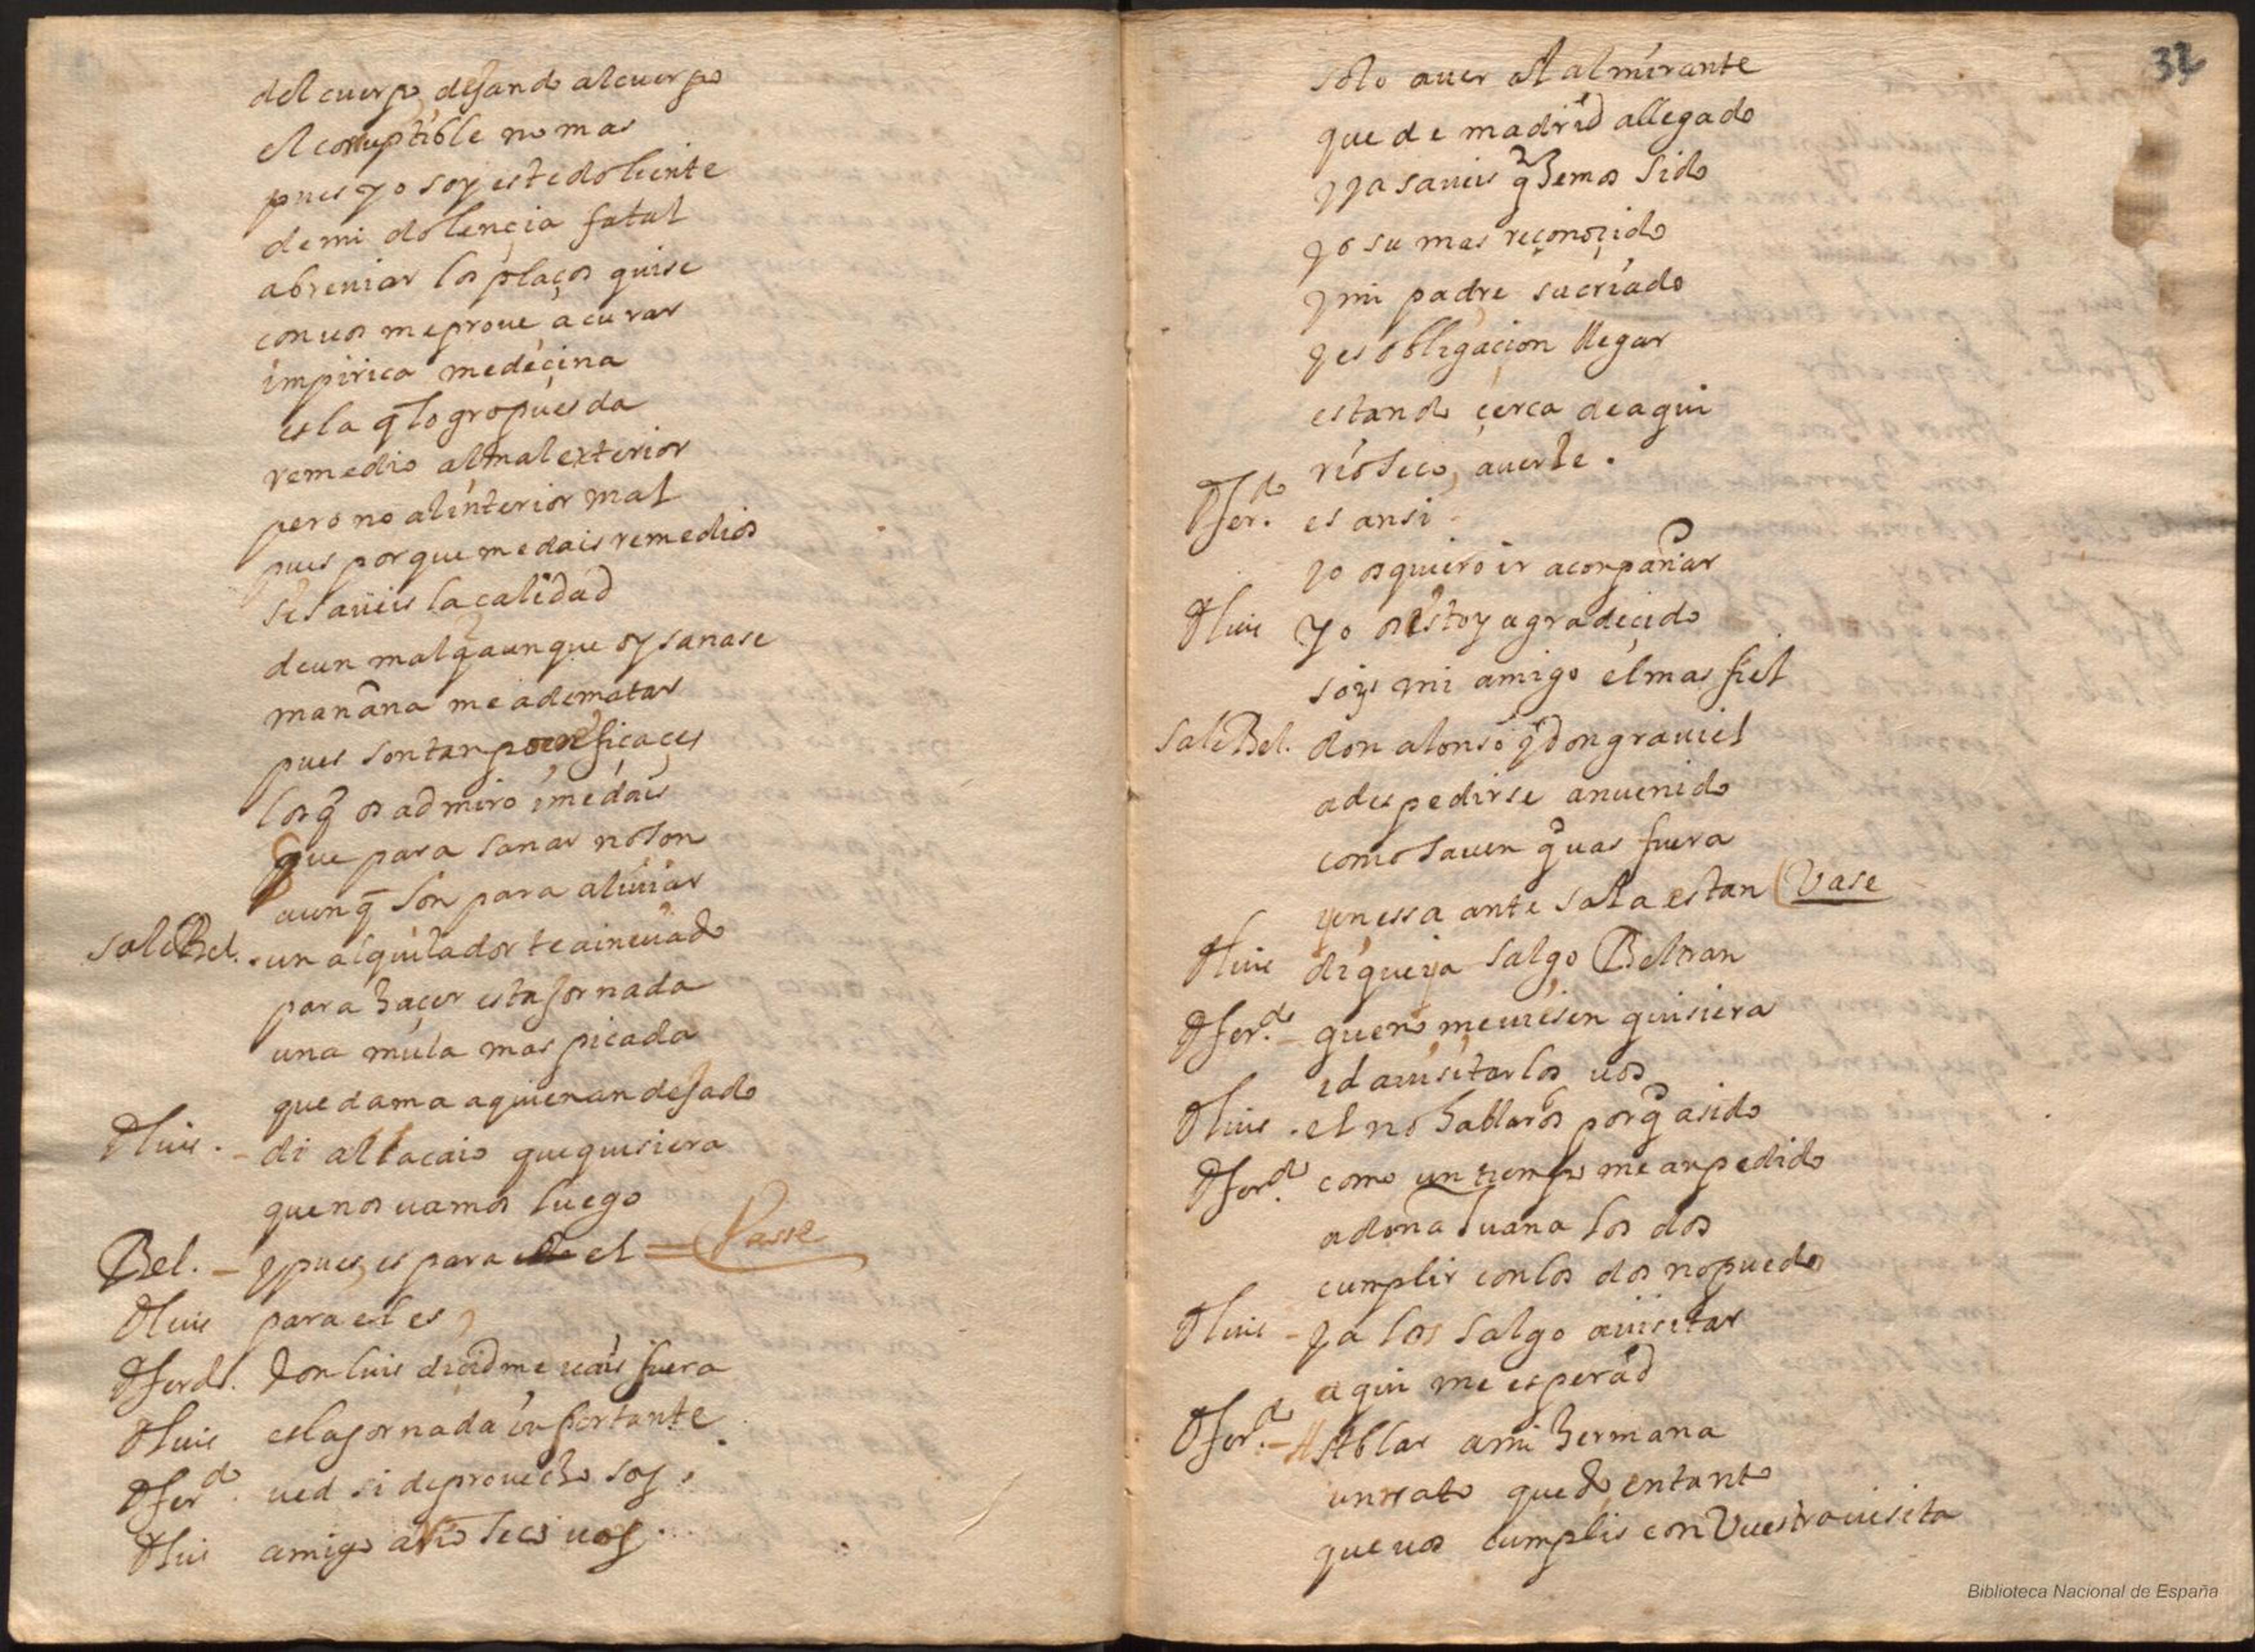 del cuerpo, dejando al cuerpo
el corruptible no mas
pues yo soy este doliente
de mi dolençia fatal
abreuiar los plaços quise
con uos me proue a curar
impirica mediçina
es la q̃ logro pues da
remedio al mal exterior
pero no al interior mal
pues por que me dais remedios
si saueis la calidad
de un mal q̃ aunque oy sanase
mañana me a de matar
pues son tan poco efiçaçes
los q̃ os admiro i me dais
que para sanar no son
aunq̃ son para aliuiar
Sale Bel. un alquilador te a inuiado
para haçer esta jornada
una mula mas picada
que dama a quien an dejado
D luis. di al lacaio que quisiera
que nos uamos luego
Bel. y pues, es para el Vasse
D luis para el es,
D ferdo. don luis deçidme uais fuera
D luis es la jornada inportante
D ferdo. ued si de prouecho soy.
D luis amigo a Rio seco uoy.
32
solo a uer al almirante
que de madrid a llegado
y ya saueis q̃ hemos sido
yo su mas reconoçido
y mi padre su criado
y es obligaçion llegar
estando çerca de aqui
rioseco, a uerle.
D ferdo. es ansi
yo os quiero ir aconpañar
D luis yo os estoy agradeçido
soys mi amigo el mas fiel
Sale Bel. don alonso y don grauiel
a despedirse an uenido
como sauen q̃ uas fuera
y en essa ante sala estan Vase
D luis di que ya salgo Beltran
D ferdo. que no me uiesen quisiera
id a uisitarlos uos
D luis. el no hablaros porq̃ a sido
D ferdo. como un tiempo me an pedido
a doña Iuana los dos
cumplir con los dos no puedo
D luis ya los salgo a uisitar
aqui me esperad
D ferdo. Ablar a mi hermana
un rato quedo, entanto
que uos cumplis con Vuestra uisita
Biblioteca Nacional de España